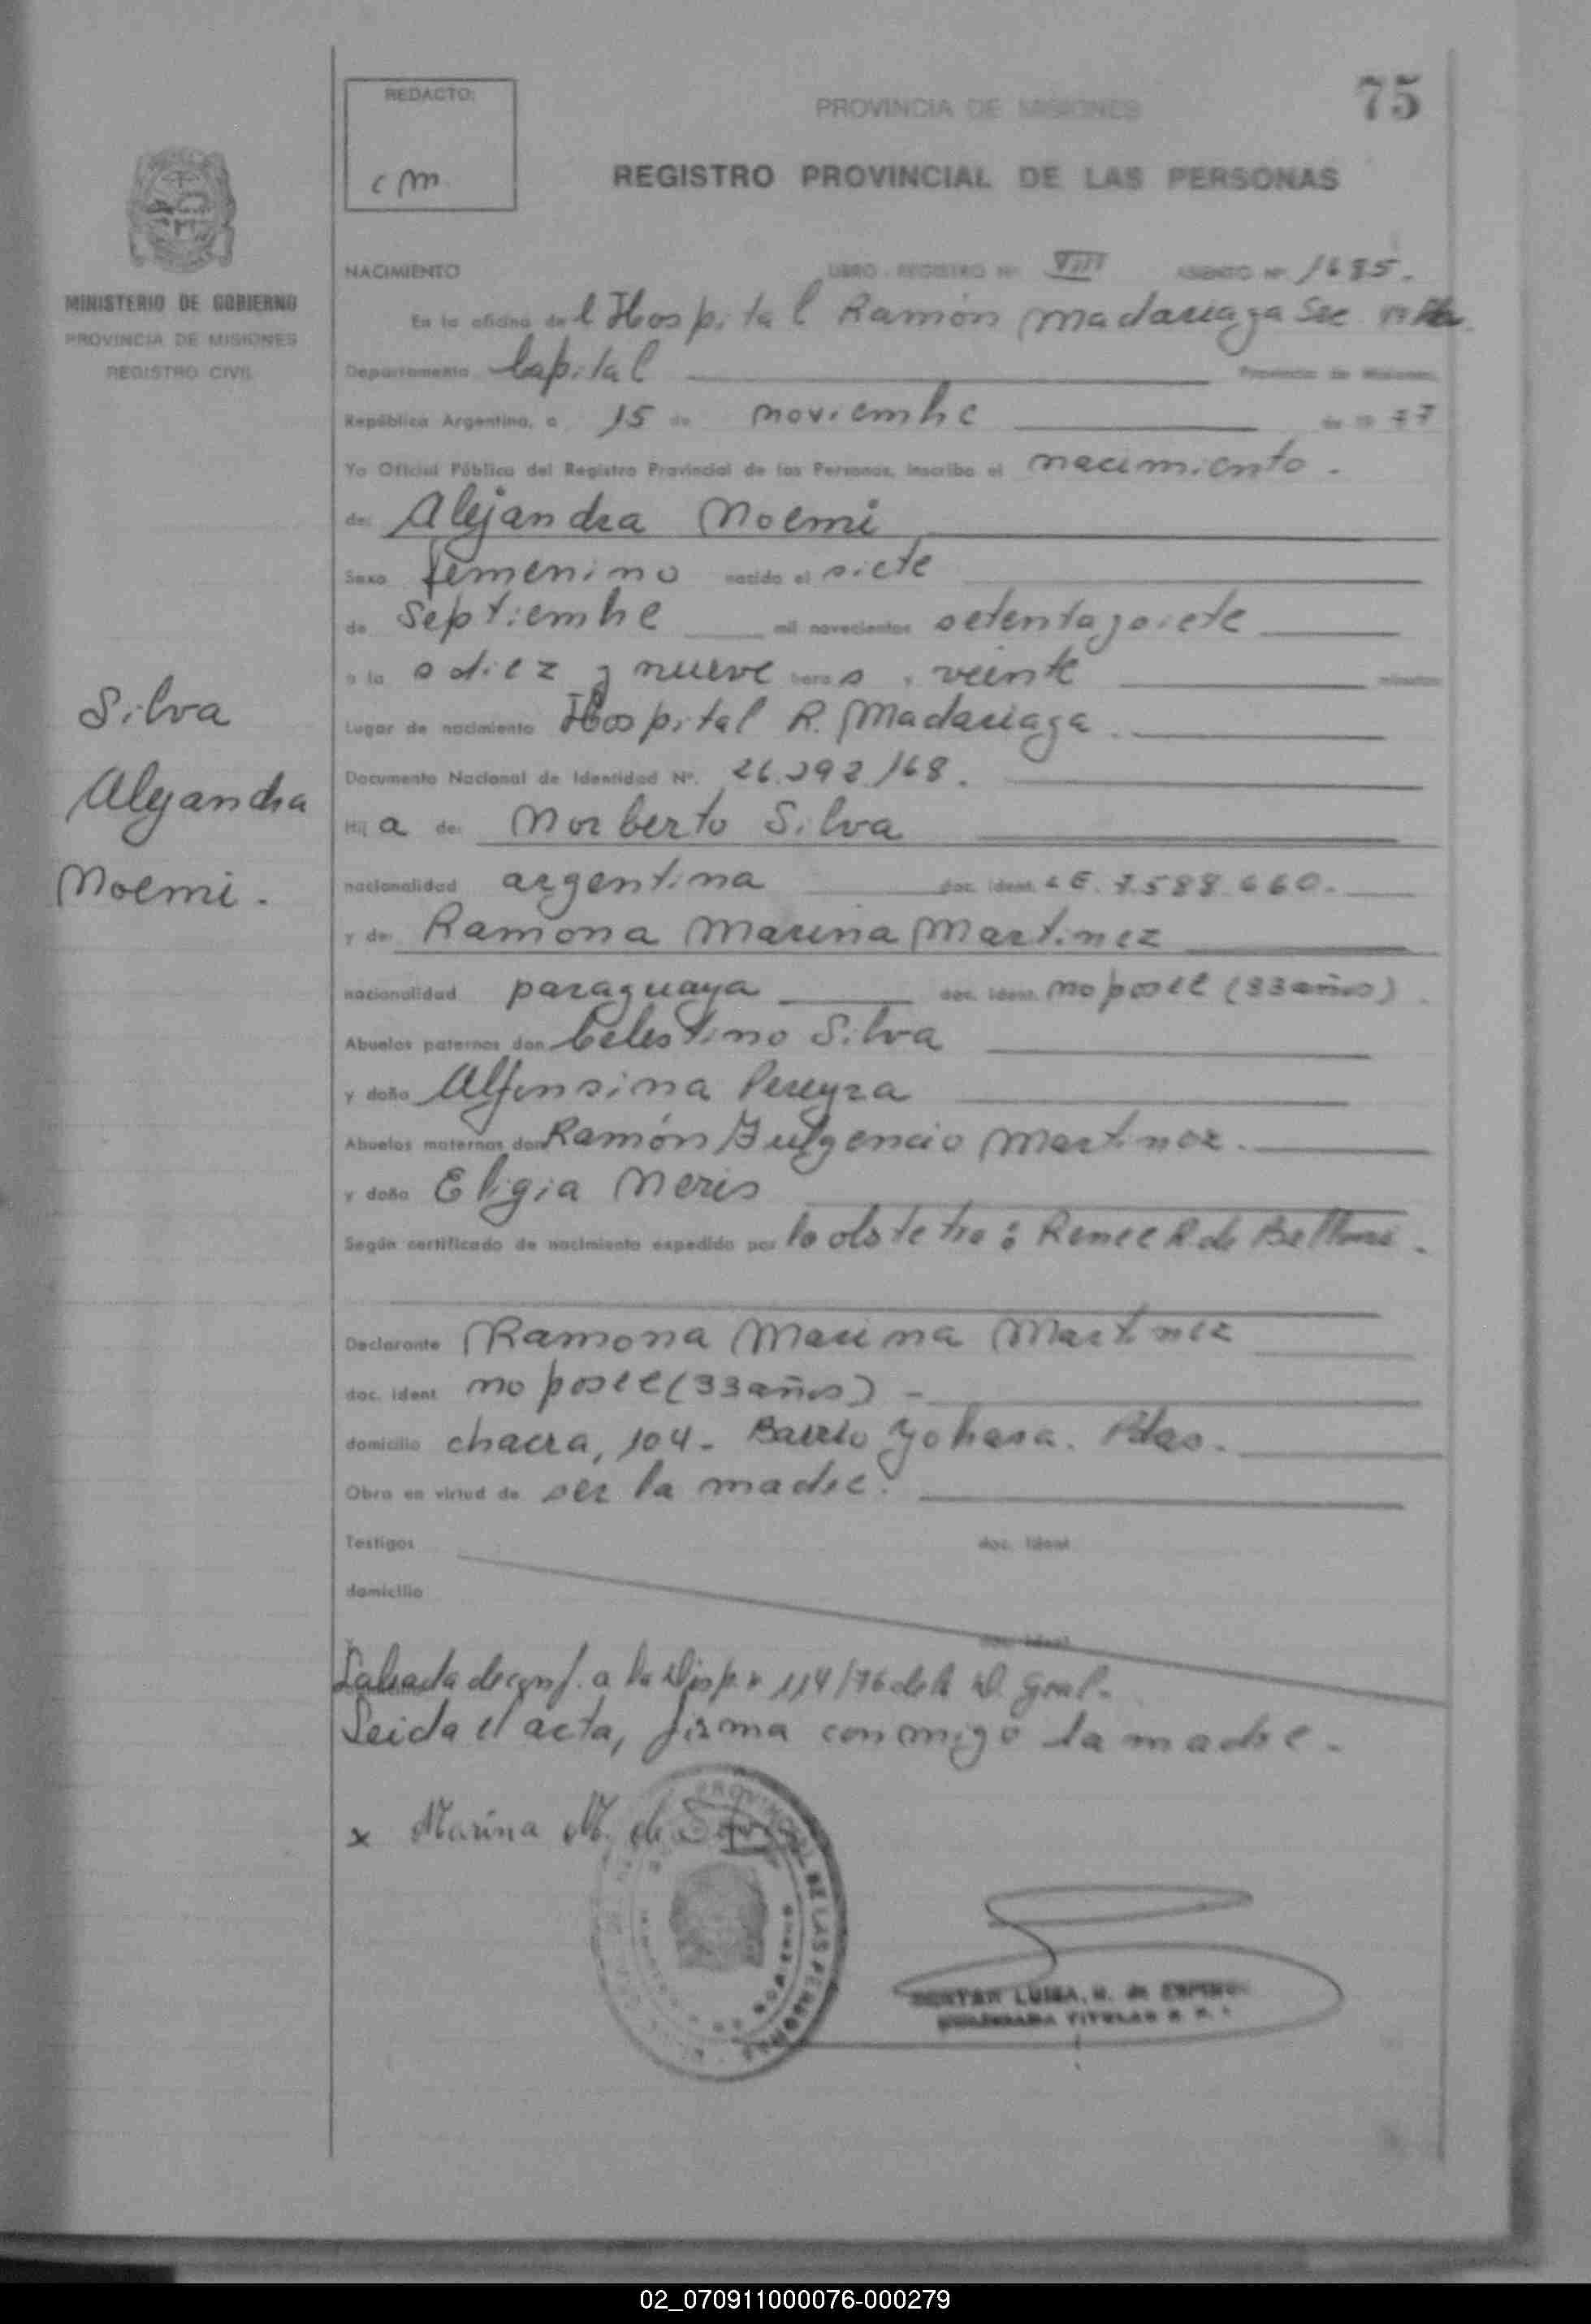 75
REDACTO:
cm
PROVINCIA DE MISIONES
REGISTRO PROVINCIAL DE LAS PERSONAS
MINISTERIO DE GOBIERNO
PROVINCIA DE MISIONES
REGISTRO CIVIL
NACIMIENTO LIBRO - REGISTRO Nº VIII ASIENTO Nº 1685.
En la oficina del Hospital Ramón Madariaga Sec.
Departamento Capital Provincia de Misiones,
República Argentina, a 15 de noviembre de 19 77
Yo Oficial Público del Registro Provincial de las Personas, inscribo el nacimiento.
de: Alejandra Noemi
Sexo femenino nacido el siete
de Septiembre mil novecientos setenta y siete
a la s diez y nueve hora s, veinte minutos
Lugar de nacimiento Hospital R. Madariaga.
Documento Nacional de Identidad Nº. 26.292.168.
Hij a de: Norberto Silva
nacionalidad argentina doc. ident. LE. 7.588.660.
y de: Ramona Marina Martinez
nacionalidad paraguaya doc. ident. no posee (33 años)
Abuelos paternos don Celestino Silva
y doña Alfonsina Pereyra
Abuelos maternos don Ramón Fulgencio Martinez.
y doña Eligia Neris
Según certificado de nacimiento expedido por la obstetra: Renee R. de
Declarante Ramona Marina Martinez
doc. ident. no posee (33 años) -
domicilio chacra, 104 - Barrio Yohasa. Pdas.
Obra en virtud de ser la madre.
Testigos doc. ident.
domicilio
doc. ident.
Labrada de conf. a la Disp. 114/76 de la D. Gral.
Leida el acta, firma conmigo la madre.
x Marina M. de Silva
PROVINCIAL DE LAS PERSONAS
LUISA, R. de
TITULAR
Silva
Alejandra
Noemi.
02_070911000076-000279